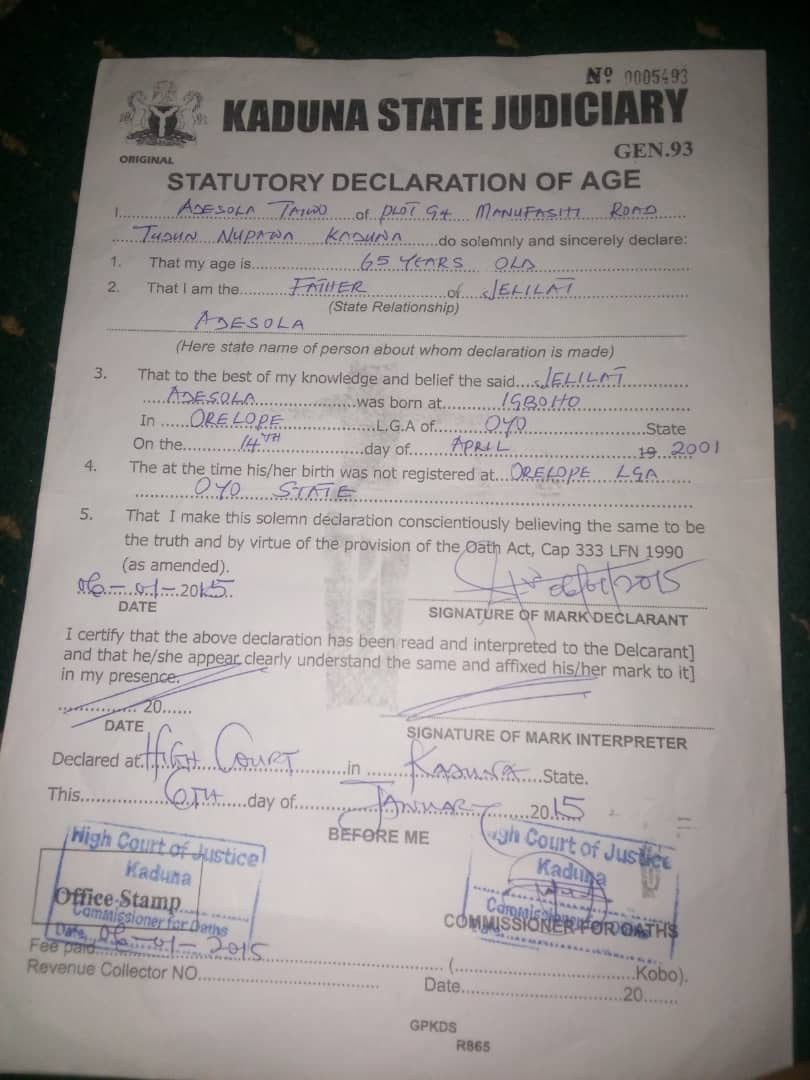 Nº 0005493
KADUNA STATE JUDICIARY
ORIGINAL
GEN.93
STATUTORY DECLARATION OF AGE
I......ADESOLA TAIWO......of PLOT 94 MANUFASITI ROAD
TUDUN NUPAWA KADUNA......do solemnly and sincerely declare:
1. That my age is......65 YEARS OLD
2. That I am the......FATHER......of JELILAT
(State Relationship)
ADESOLA
(Here state name of person about whom declaration is made)
3. That to the best of my knowledge and belief the said....JELILAT
ADESOLA......was born at......IGBOHO
In......ORELOPE......L.G.A of......OYO......State
On the......14TH......day of......APRIL......19 2001
4. The at the time his/her birth was not registered at...ORELOPE LGA
OYO STATE
5. That I make this solemn declaration conscientiously believing the same to be
the truth and by virtue of the provision of the Oath Act, Cap 333 LFN 1990
(as amended).
06-01-2015
06/01/2015
DATE
SIGNATURE OF MARK DECLARANT
I certify that the above declaration has been read and interpreted to the Delcarant]
and that he/she appear clearly understand the same and affixed his/her mark to it]
in my presence.
......20......
DATE
SIGNATURE OF MARK INTERPRETER
Declared at HIGH COURT......in......KADUNA....State.
This......6TH......day of......JANUARY......2015
BEFORE ME
High Court of Justice
Kaduna
Office Stamp
Commissioner for Oaths
Date, 06-01-2015
High Court of Justice
Kaduna
COMMISSIONER FOR OATHS
Fee paid......(......Kobo).
Revenue Collector NO......
Date......20......
GPKDS
R865